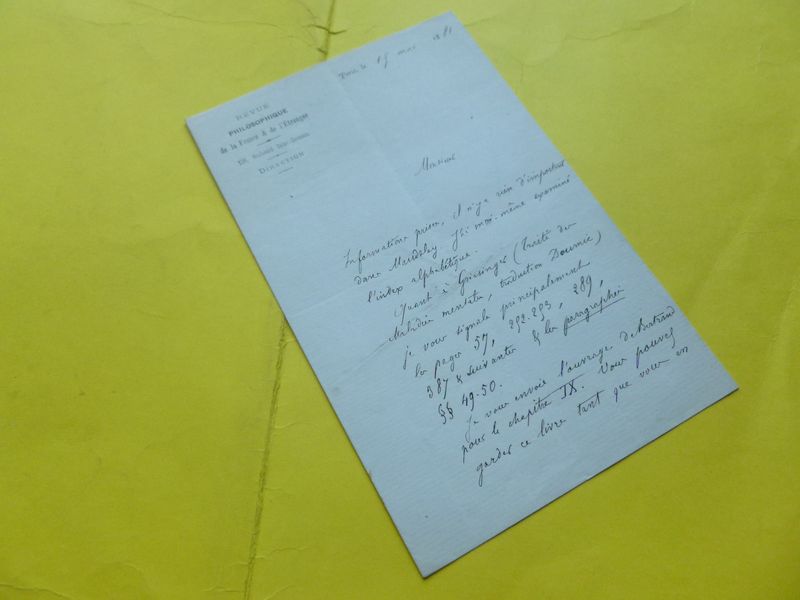 REVUE
PHILOSOPHIQUE
de la France & de l'Étranger
Boulevard Saint-Germain
DIRECTION
Paris, le 15 mai 1881
Monsieur
Informations prises, il n'y a rien d'important
dans Maudsley. J'ai moi-même examiné
l'index alphabétique.
Quant à Griesinger (Traité des
Maladies mentales, traduction Doumic)
je vous signale principalement
les pages 57, 292-293, 289,
387 & suivantes & les paragraphes
§§ 49-50.
Je vous envoie l'ouvrage de Bertrand
pour le chapitre IX. Vous pouvez
garder ce livre tant que vous en